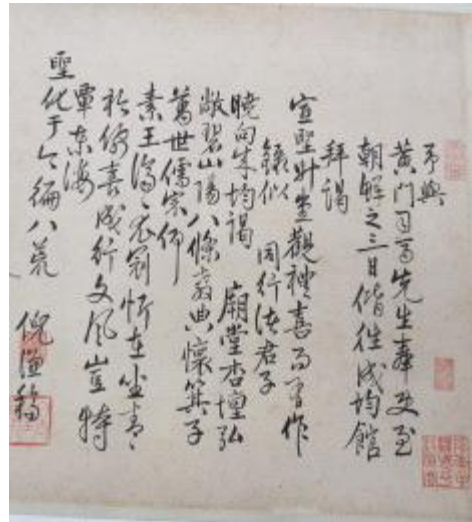 予與
黃門司馬先生奉使至
朝鮮之三日偕往成均館
拜謁
宣聖升堂觀禮喜而有作
錄似 同行諸君子
曉向成均謁 廟堂杏壇弘
敞碧山陽八條舊典懷箕子
萬世儒宗仰
素王濟濟衣冠忻在坐青青
衿佩喜成行文風豈特
覃東海
聖化于今徧八荒 倪謙稿